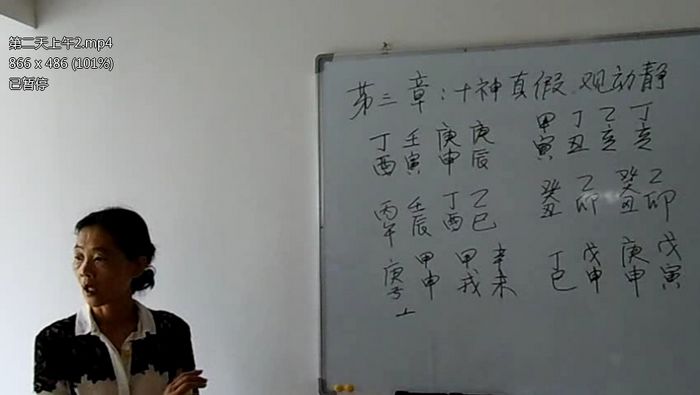 第二天上午2.mp4
866 x 486 (101%)
已暂停
第三章:十神真假 观动静
丁 壬 庚 庚 甲 丁 乙 丁
酉 寅 申 辰 寅 丑 亥 亥
丙 壬 丁 乙 癸 乙 癸 乙
午 辰 酉 巳 丑 卯 丑 卯
庚 甲 甲 辛 丁 戊 庚 戊
申 戌 未 巳 申 申 寅